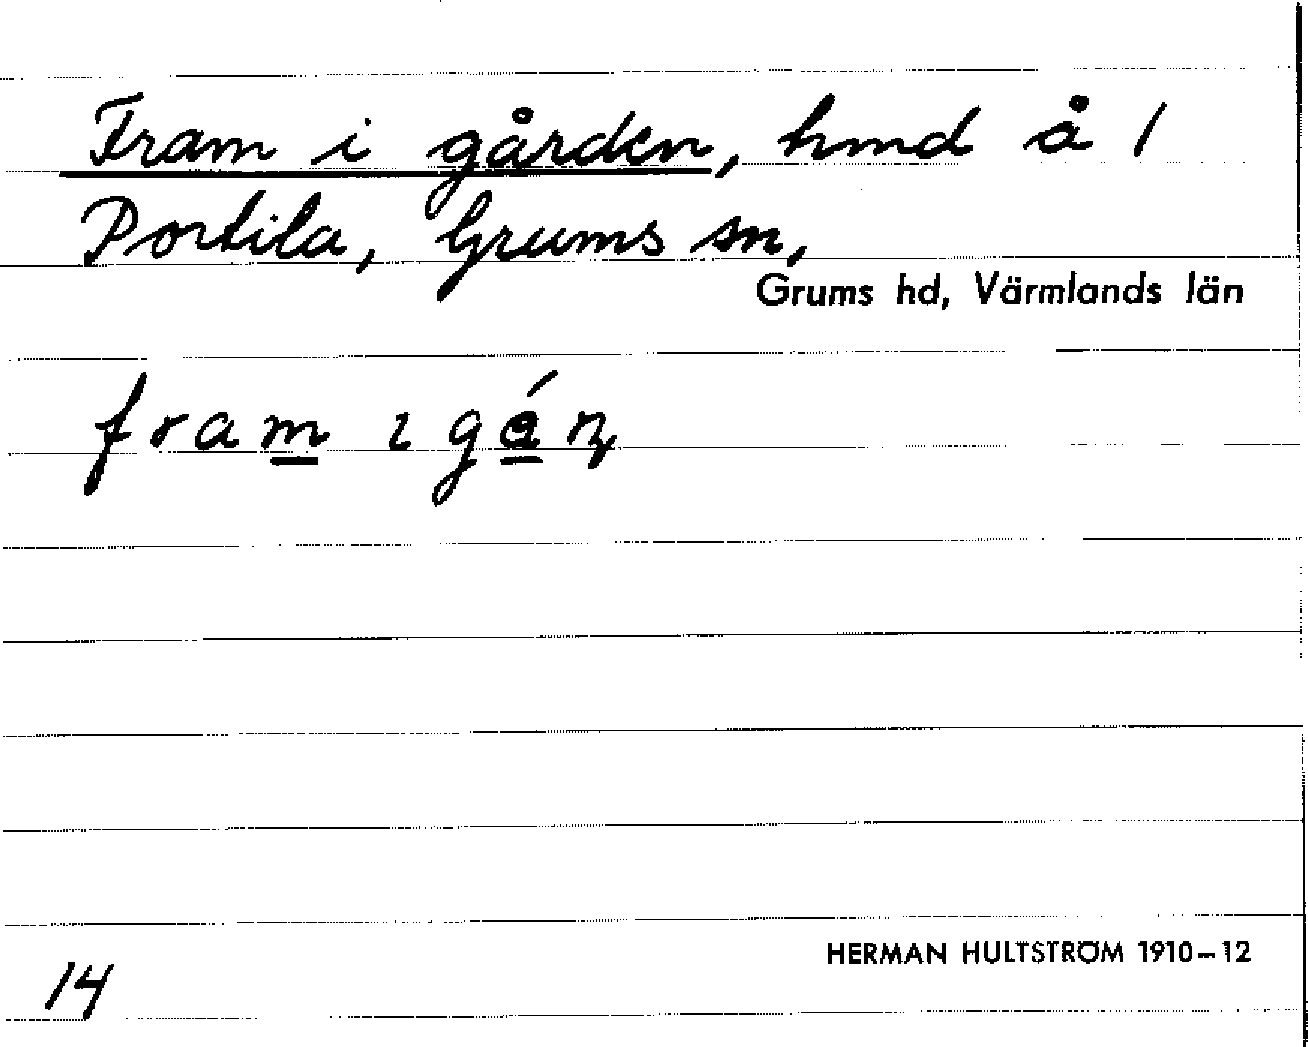 Fram i gården, hmd å 1
Portila, Grums sn,
Grums hd, Värmlands län
fram ı gǻɳ
HERMAN HULTSTRÖM 1910–12
14